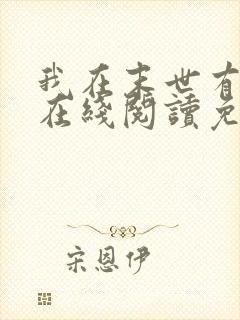 我在末世有
在綫閱讀免
宋恩伊